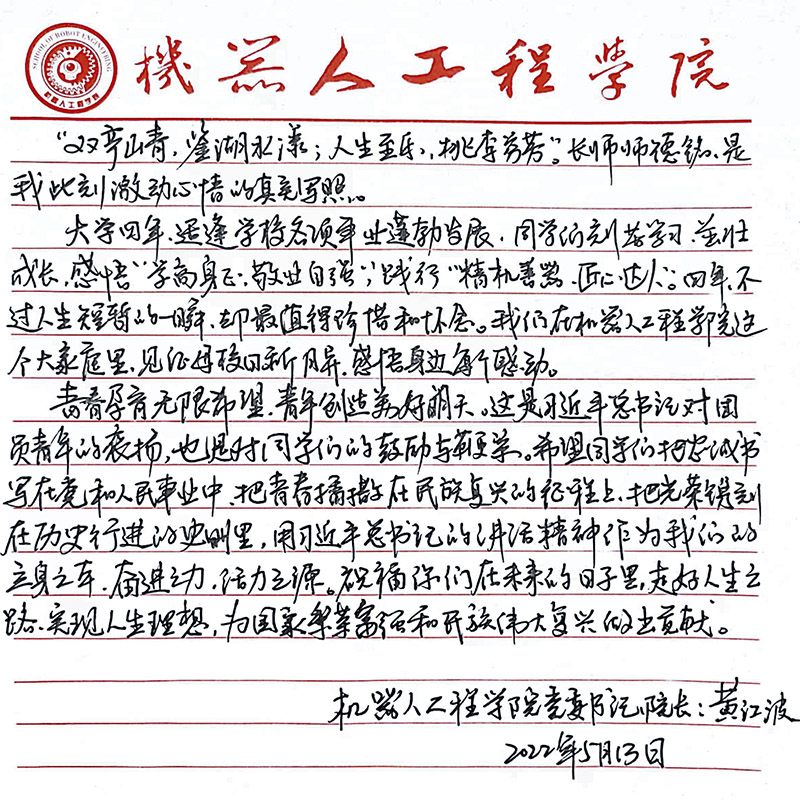 SCHOOL OF ROBOT ENGINEERING
机器人工程学院
機器人工程學院
“双弯山青，鉴湖水漾；人生至乐，桃李芬芳”。长师师德铭，是
我此刻激动心情的真刻写照。
大学四年，适逢学校各项事业蓬勃发展，同学们刻苦学习、茁壮
成长，感悟“学高身正、敬业自强”，践行“精机善器、匠心达人”。四年，不
过人生短暂的一瞬，却最值得珍惜和怀念。我们在机器人工程学院这
个大家庭里，见证母校日新月异，感悟身边每个感动。
青春孕育无限希望，青年创造美好明天。这是习近平总书记对团
员青年的褒扬，也是对同学们的鼓励与鞭策。希望同学们把忠诚书
写在党和人民事业中，把青春播撒在民族复兴的征程上，把光荣镌刻
在历史行进的史册里，用习近平总书记的讲话精神作为我们的
立身之本、奋进之力、活力之源。祝福你们在未来的日子里，走好人生之
路、实现人生理想，为国家繁荣富强和民族伟大复兴做出贡献。
机器人工程学院党委书记/院长：黄江波
2022年5月13日